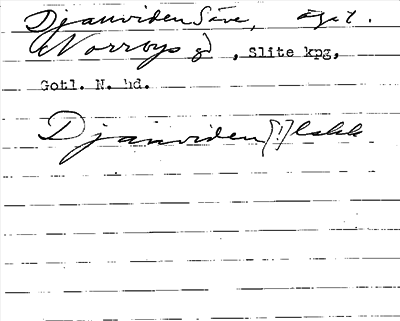 Djanviden Säve, ägit.
Norrbys gd, Slite kpg,
Gotl. N. hd.
Djanviden [!]